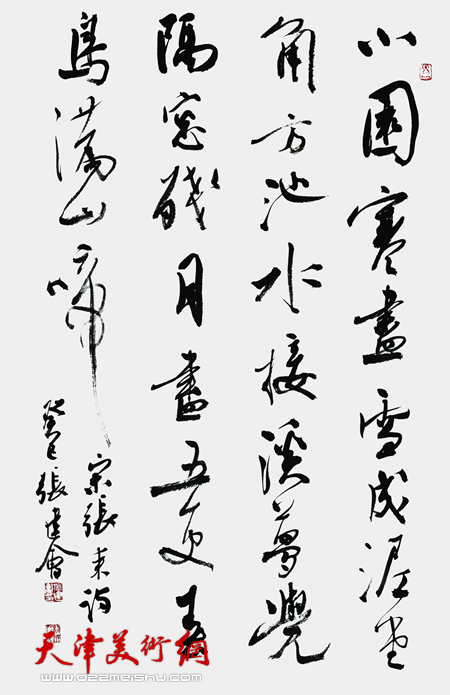 小園寒盡雪成泥堂
角方池水接溪夢覺
隔窓殘月盡五更春
鳥滿山啼
宋張耒詩
癸巳張建會
天津美術網
www.022meishu.com